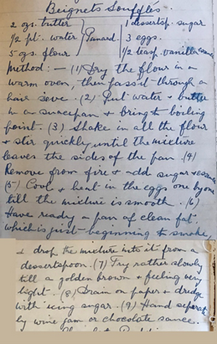 Beignets Soufflés.
2 ozs. butter 1 dessertsp. sugar
½ pt. water } Panard 3 eggs.
5 ozs. flour ½ teasp. vanilla
Method: — (1) Dry the flour in a
warm oven, then pass it through a
hair sieve. (2) Put water & butter
in a saucepan & bring to boiling
point. (3) Shake in all the flour
& stir quickly until the mixture
leaves the sides of the pan. (4)
Remove from fire & add sugar
(5) Cool & beat in the eggs one by one
till the mixture is smooth. (6)
Have ready a pan of clean fat,
which is just beginning to smoke,
& drop the mixture into it from a
dessertspoon. (7) Fry rather slowly
till a golden brown & feeling very
light. (8) Drain on paper & dredge
with icing sugar. (9) Hand separately
by wine jam or chocolate sauce.